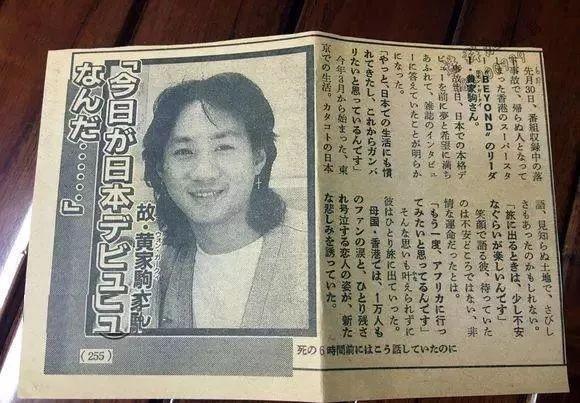 先月30日、番組収録中の落
事故で、帰らぬ人となって
った香港のスーパースタ
ー“BEYOND”のリーダ
ー・黄家駒さん。
事故当日、日本での本格デ
ビューを前に夢と希望に満ち
あふれて、雑誌のインタビュ
ーに答えていたことが明らか
になった。
「やっと、日本での生活にも慣
れてきたし、これからガンバ
りたいと思っているんです」
今年3月から始まった、東
京での生活。カタコトの日本
語、見知らぬ土地で、さびし
さもあったのかもしれない。
「旅に出るときは、少し不安
なぐらいが楽しいんです」
笑顔で語る彼、待っていた
のは不安どころではない、非
情な運命だったとは。
「もう一度、アフリカに行っ
てみたいと思ってるんです」
そんな思いも叶えられずに
彼はひとり旅に出ていった。
母国・香港では、1万人も
のファンの涙と、ひとり残さ
れ号泣する恋人の姿が、新た
な悲しみを誘っていた。
「今日が日本デビュー
なんだ……」
故・黄家駒さん
(255)
死の6時間前にはこう話していたのに